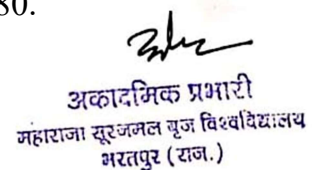 80.
अकादमिक प्रभारी
महाराजा सूरजमल बृज विश्वविद्यालय
भरतपुर (राज.)